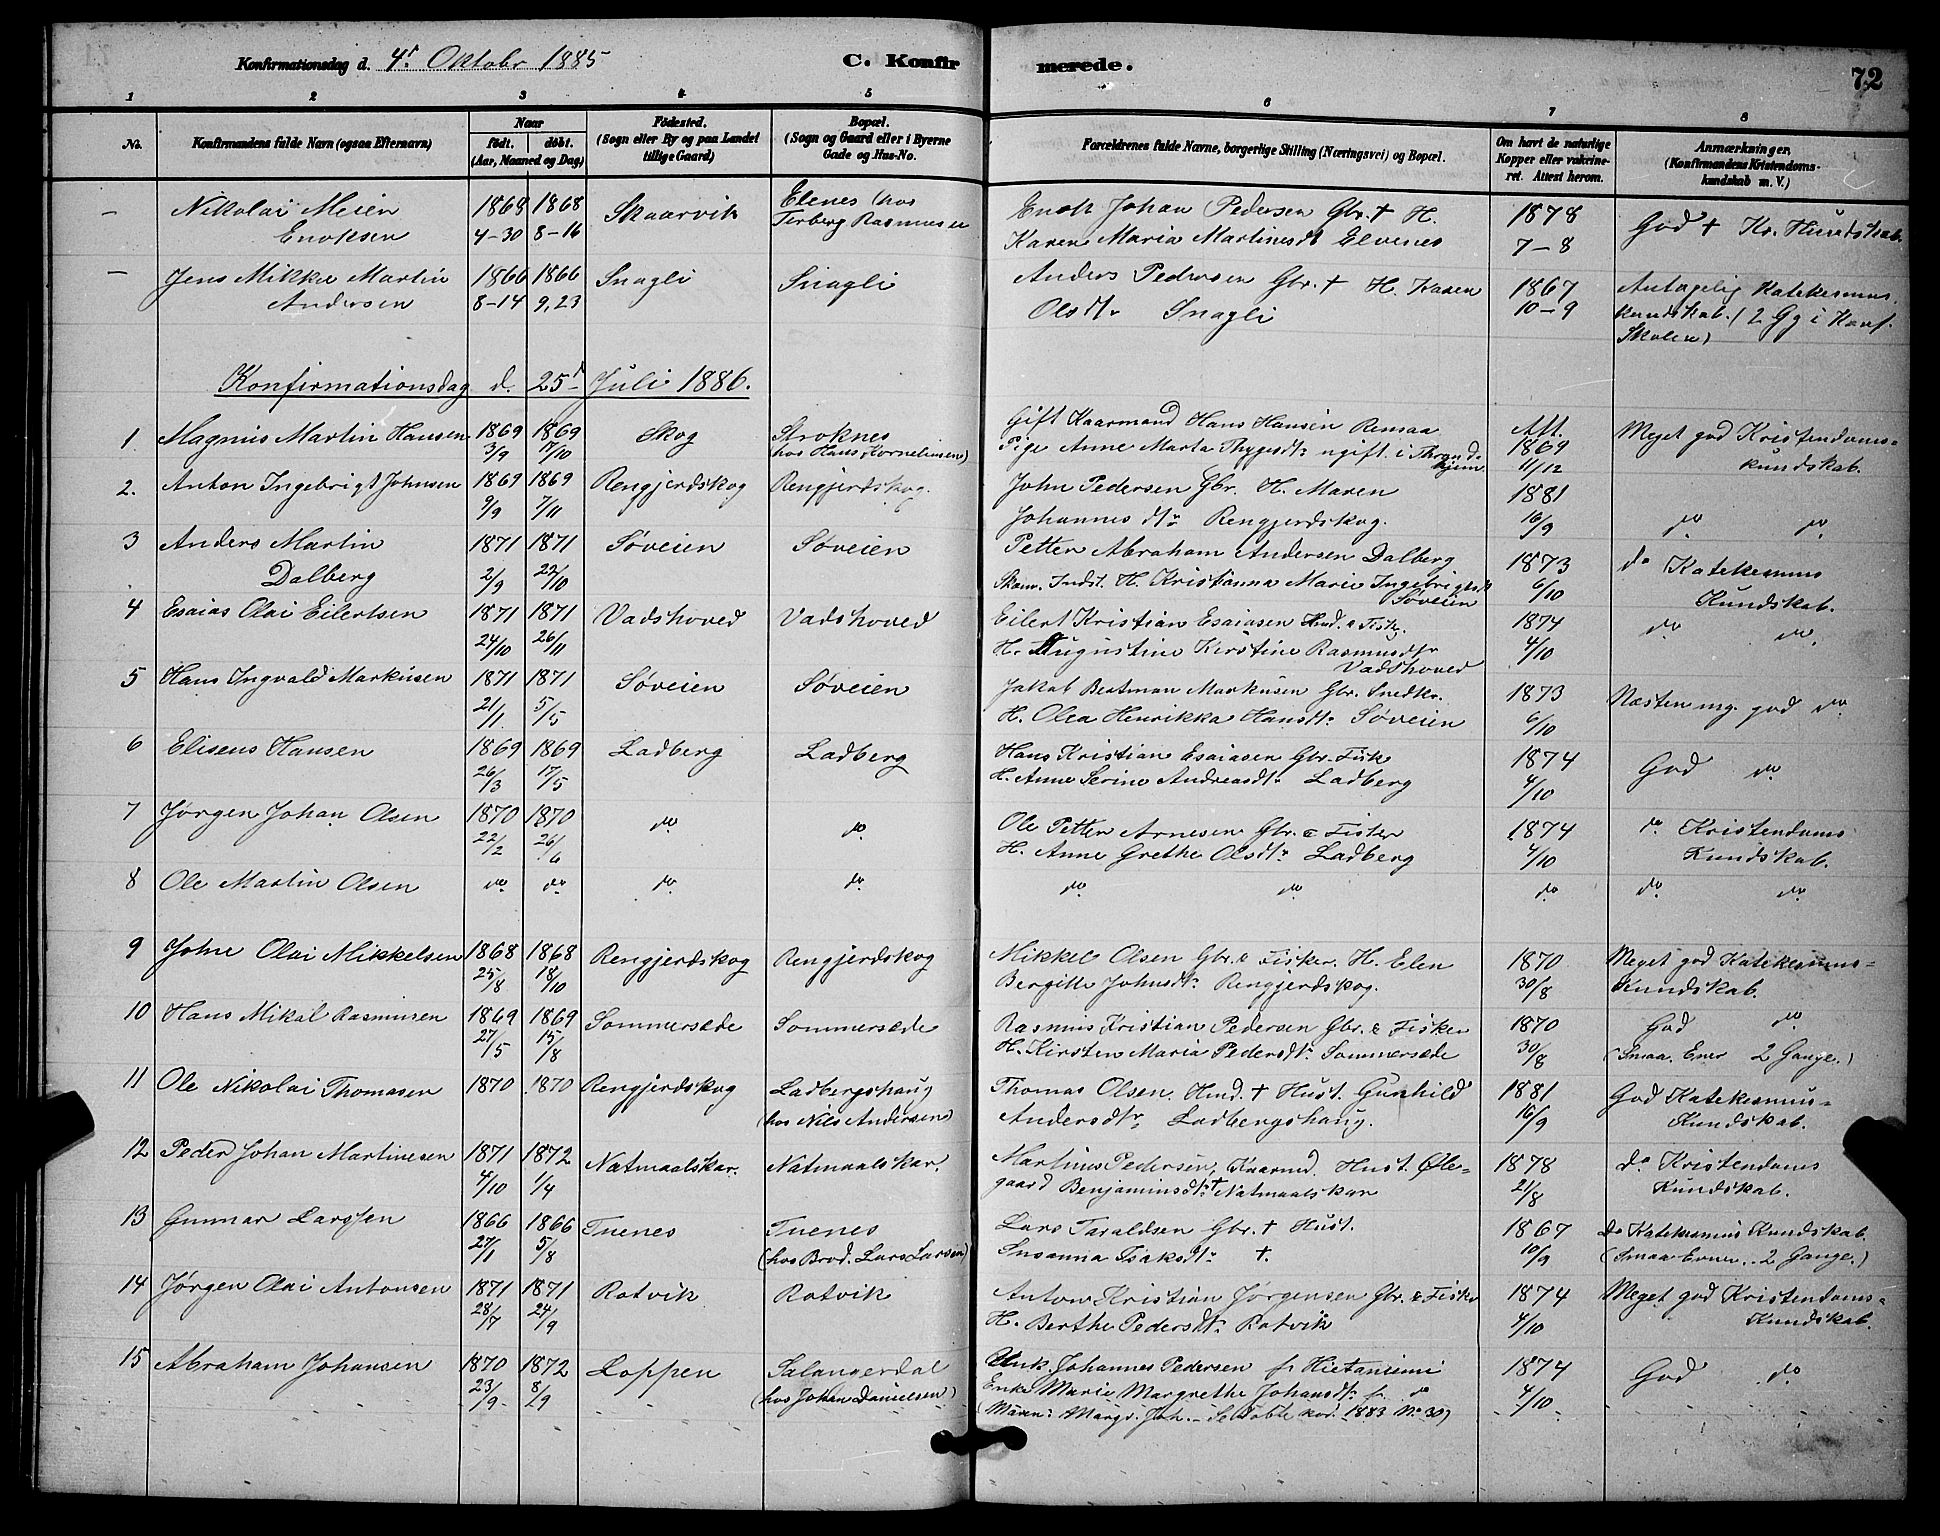 Konfirmationsdag d. 4de Oktobr 1885
C. Konfirmerede.
72
1 2 3 4 5 6 7 8
No.
Konfirmandens fulde Navn (ogsaa Efternavn)
Naar
födt. döbt.
(Aar, Maaned og Dag)
Födested.
(Sogn eller By og paa Landet
tillige Gaard)
Bopæl.
(Sogn og Gaard eller i Byerne
Gade og Hus-No.
Forældrenes fulde Navne, borgerlige Stilling (Næringsvei) og Bopæl.
Om havt de naturlige
Kopper eller vakcineret. Attest herom.
Anmærkninger,
(Konfirmandens Kristendomskundskab m. V.)
- Nikolai Meier 1868 1868 Skaarvik Elenes (hos Enok Johan Pedersen Gbr. + H. 1878 God + Kr. Kundskab.
Enoksen 4-30 8-16 Terberg Rasmussen Karen Maria Martinesdt Elvenes 7-8
- Jens Mikkel Martin 1866 1866 Snagli Snagli Anders Pedersen Gbr. + H. Karen 1867 Antagelig Katekesmus
Andersen 8-14 9,23 Olsdtr Snagli 10-9 kundskab. (2 Gg i Konf.
Skolen)
Konfirmationsdag d. 25de Juli 1886.
1 Magnus Martin Hansen 1869 1869 Skog Stroknes Gift Kaarmand Hans Hansen Remaa Aft. 1869 Meget god Kristendoms=
3/9 17/10 (hos Hans Kornelinsen) Pige Anne Marta Thygesdtr ugift. i Throndhjem 11/12 kundskab.
2. Anton Ingebrigt Johnsen 1869 1869 Rengjerdskog Rengjerdskog. John Pedersen Gbr. H. Maren 1881
9/9 7/11 Johannesdtr Rengjerdskog. 16/9 do do
3 Anders Martin 1871 1871 Søveien Søveien Petter Abraham Andersen Dalberg 1873 do Katekesmus
Dalberg 2/9 22/10 Skom. Indst. H. Kristianna Marie Ingebrigtsdt 6/10 Kundskab.
Søveien
4 Esaias Olai Eilertsen 1871 1871 Vadshoved Vadshoved Eilert Kristian Esaiasen Hmd. & Fisk. 1874 do do
24/10 26/11 H. Augustine Kirstine Rasmusdtr 4/10
Vadshoved
5 Hans Ingvald Markusen 1871 1871 Søveien Søveien Jakob Beatman Markusen Gbr. Snedkr. 1873 Næsten mg. god do
21/1 5/5 H. Olea Henrikka Hansdtr Søveien 6/10
6 Eliseus Hansen 1869 1869 Ladberg Ladberg Hans Kristian Esaiasen Gbr. Fisk 1874 God do
26/3 17/5 H. Anne Serine Andreasdtr Ladberg 4/10
7 Jørgen Johan Olsen 1870 1870 do do Ole Petter Arnesen Gbr. & Fisker 1874 do Kristendoms
22/2 26/6 H. Anne Grethe Olsdtr Ladberg 4/10 Kundskab.
8 Ole Martin Olsen do do do do do do do do do
9 John Olai Mikkelsen 1868 1868 Rengjerdskog Rengjerdskog Mikkel Olsen Gbr. & Fisker. H. Elen 1870 Meget god Katekesmus=
25/8 18/10 Bergitte Johnsdtr Rengjerdskog. 30/8 Kundskab.
10 Hans Mikal Rasmusen 1869 1869 Sommersæde Sommersæde Rasmus Kristian Pedersen Gbr. & Fisker 1870 God do
27/5 15/8 H. Kirsten Maria Pedersdtr Sommersæde 30/8 (Smaa Evner 2 Gange.)
11 Ole Nikolai Thomasen 1870 1870 Rengjerdskog Ladbergshaug Thomas Olsen Hmd. + Hust. Gunhild 1881 God Katekesmus=
(hos Nils Andersen) Andersdtr, Ladbergshaug. 16/9 Kundskab.
12 Peder Johan Martinesen 1871 1872 Natmaalskar. Natmaalskar. Martines Pedersen, Kaarmd. Hust. Øle= 1878 do Kristendoms
4/10 1/4 gaard Benjaminsdtr + Natmaalskar 21/8 Kundskab.
13 Gunnar Larssen 1866 1866 Tuenes Tuenes Lars Taraldsen Gbr. + Hust. 1867 do Katekesmus Kundskab.
27/1 5/8 (hos Brod. Lars Larsen) Susanna Isaksdtr + 10/9 (Smaa Evner. 2 Gange.)
14 Jørgen Olai Antonsen 1871 1871 Rotvik Rotvik Anton Kristian Jørgensen Gbr. & Fisker 1874 Meget god Kristendoms=
28/7 24/9 H. Berthe Pedersdtr Rotvik 4/10 Kundskab.
15 Abraham Johansen 1870 1872 Loppen Salangerdal Enk. Johannes Pedersen fr Hietaniemi 1874 God do
23/9 8/29 (hos Johan Danielsen) Enke Marie Margrethe Johansdtr fr. do 4/10
(Maren Margr. Joh. - Se Døbte kor. 1883 No 30)